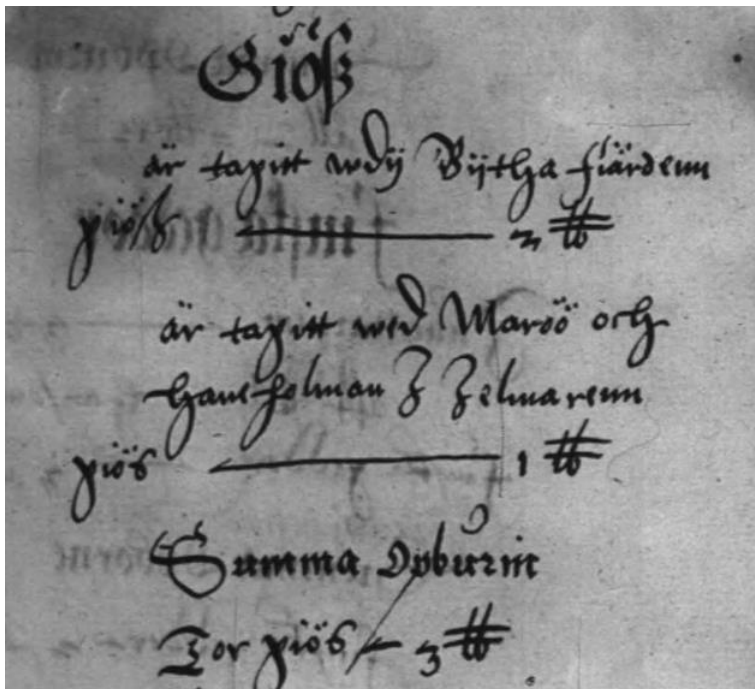 Giöß
är tagitt wdÿ Bijtha fiärdenn
giöß — 2 ℔
är tagitt wed Maröö och
haneholman I Ielmarenn
giös — 1 ℔
Summa Opburin
Tor giös — 3 ℔